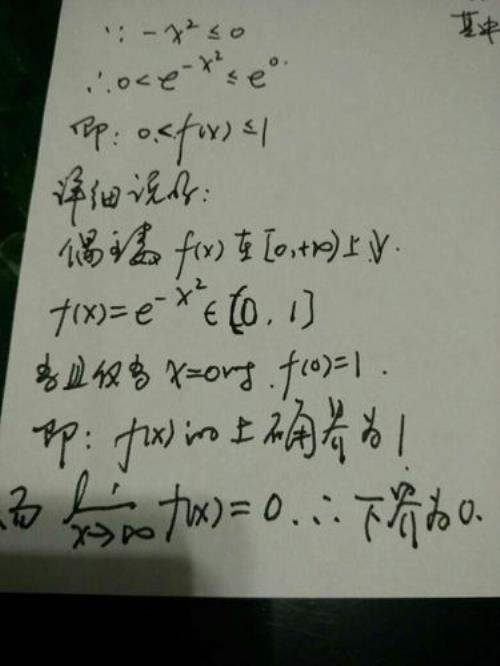 其中
∵ -x² ≤ 0
∴ 0 < e^{-x²} ≤ e^0.
即: 0 < f(x) ≤ 1
详细说明:
偶函数 f(x) 在 [0,+∞) 上↓.
f(x) = e^{-x²} ∈ [0, 1]
当且仅当 x=0时. f(0)=1.
即: f(x) 的上确界为1.
而 lim_{x→∞} f(x) = 0. ∴ 下界为0.